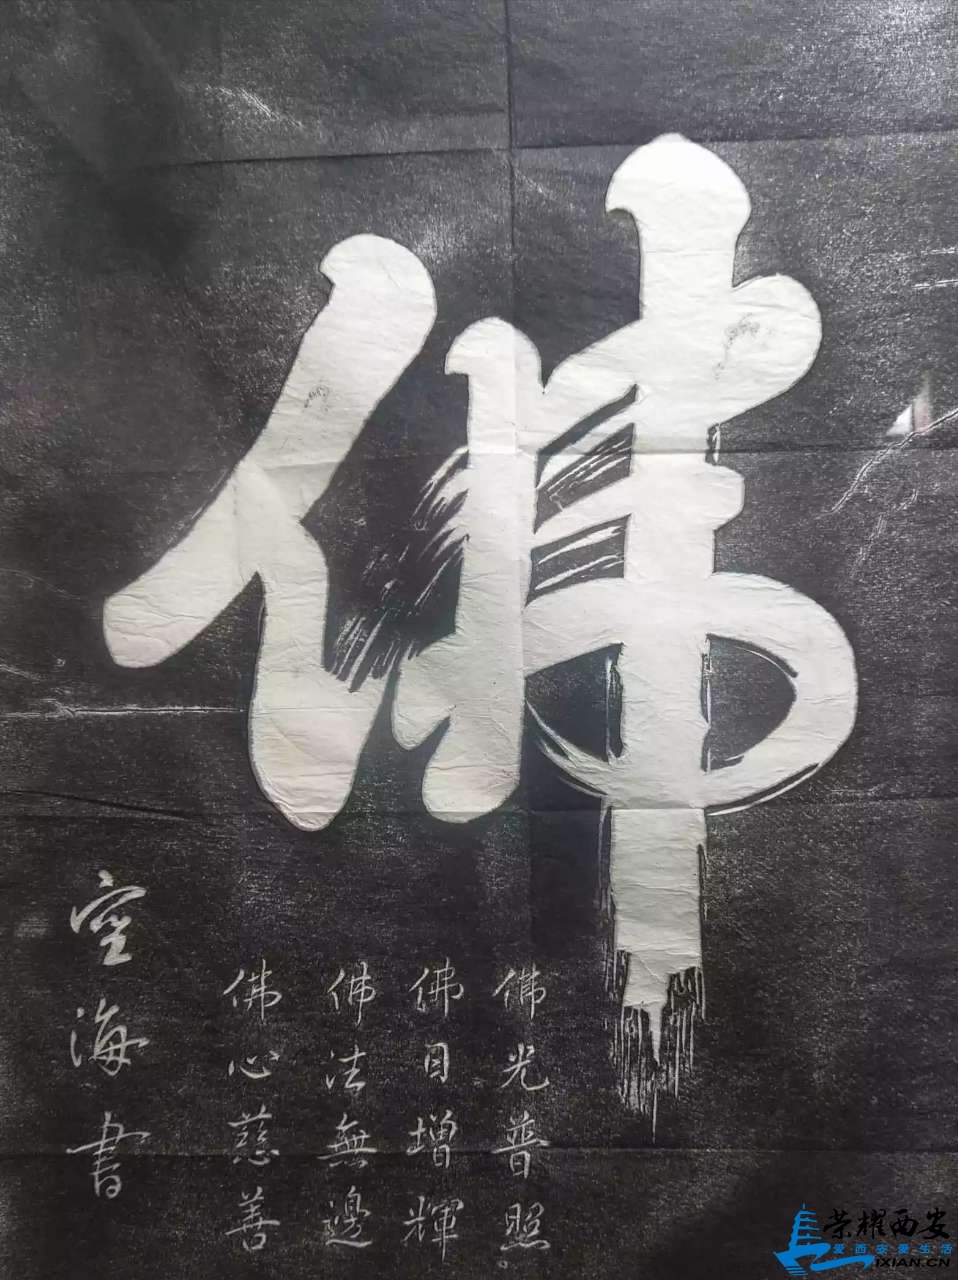 佛
佛光普照
佛目增輝
佛法無邊
佛心慈善
空海書
荣耀西安
爱西安爱生活
IXIAN.CN